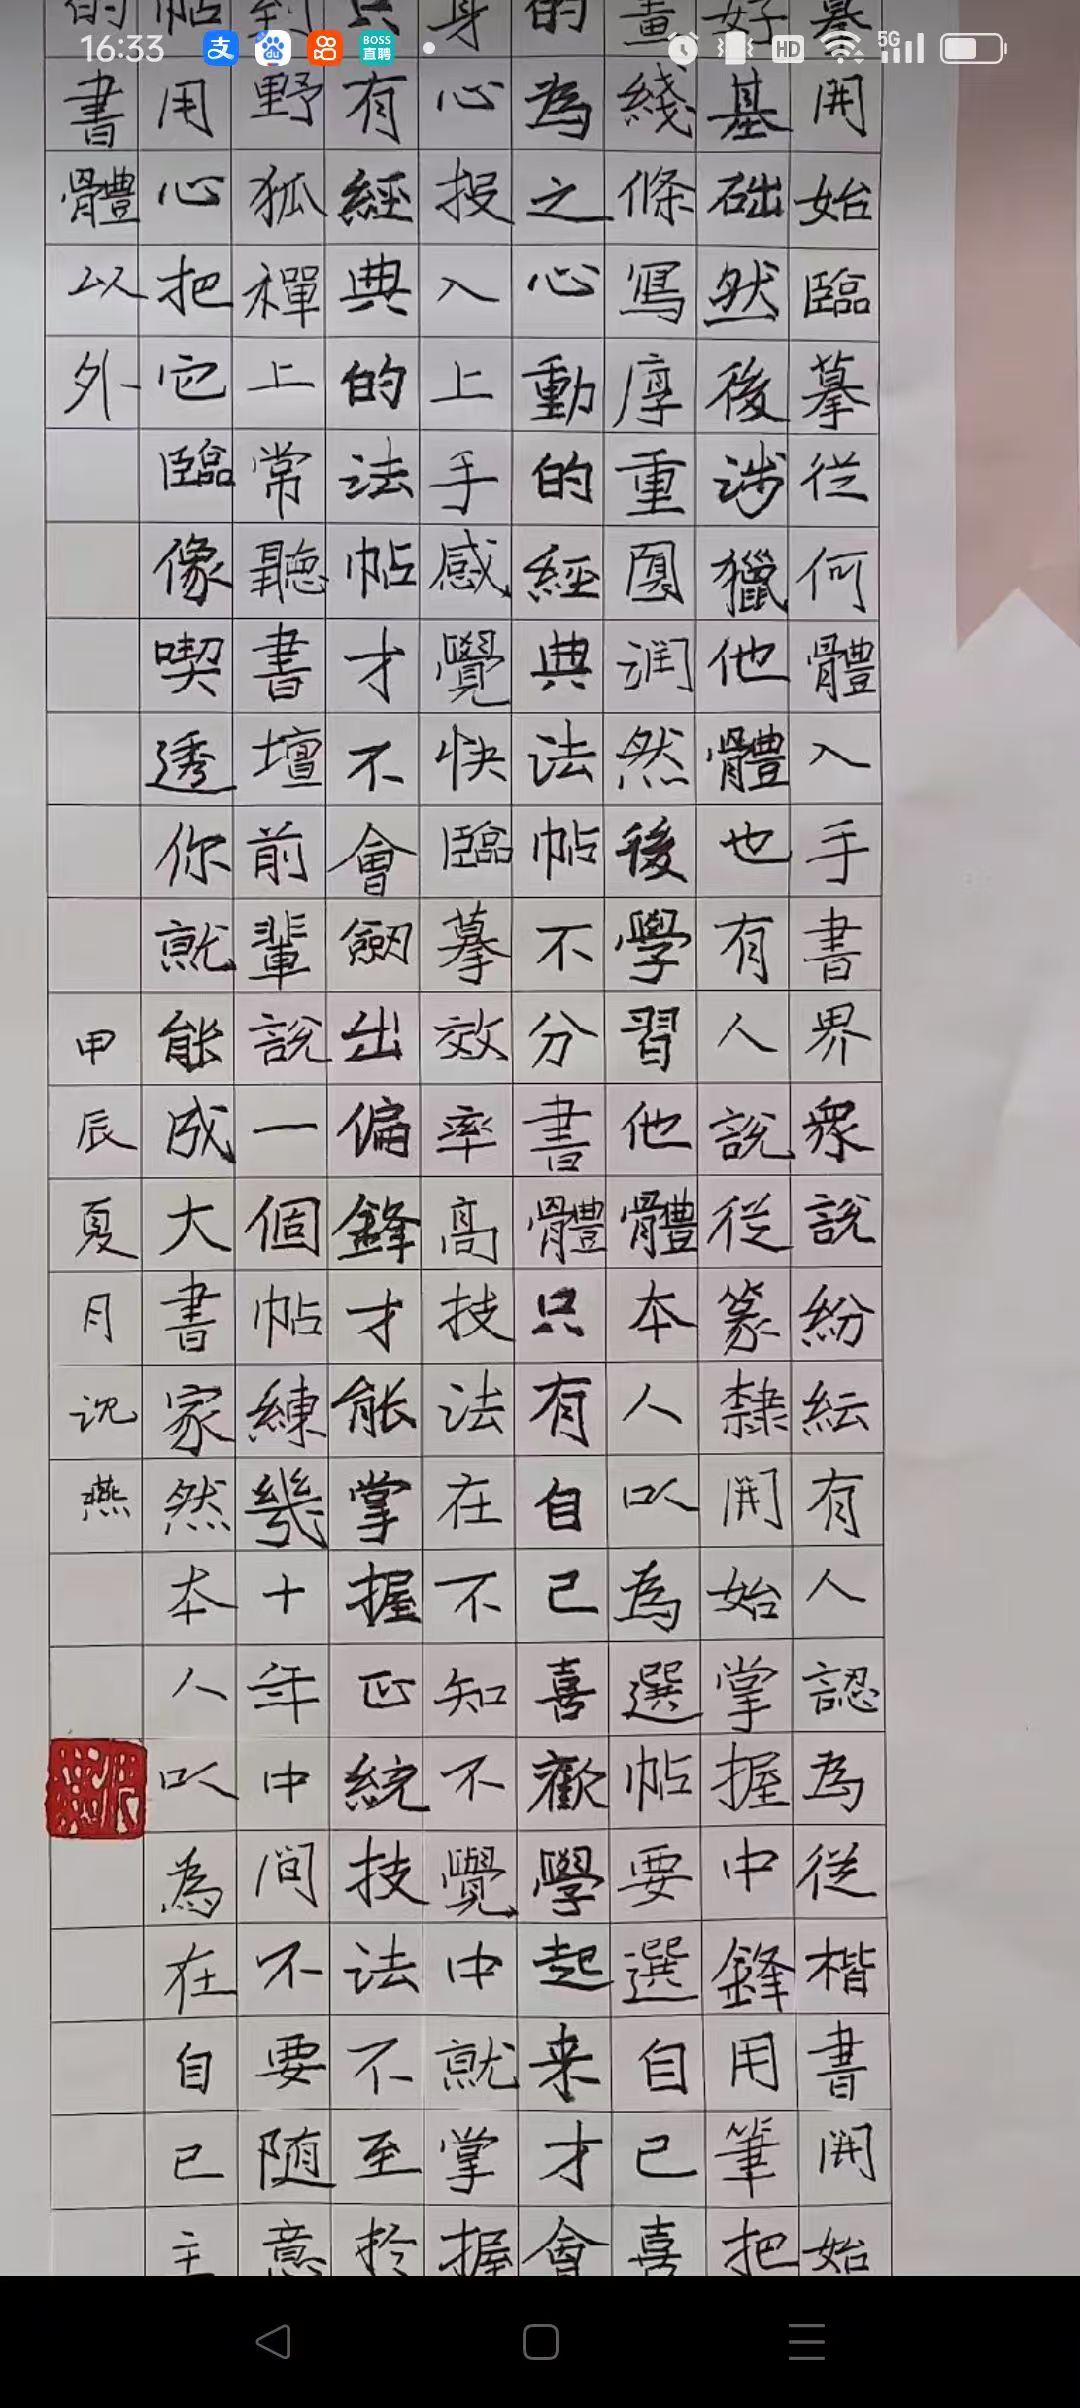 16:33 支 du BOSS直聘 HD 5G
開始臨摹從何體入手書界衆說紛紜有人認為從楷書開始
好基础然後涉獵他體也有人說從篆隸開始掌握中鋒用筆把
畫綫條寫厚重圓润然後學習他體本人以為選帖要選自己喜
的為之心動的經典法帖不分書體只有自己喜歡學起来才會
身心投入上手感覺快臨摹效率高技法在不知不覺中就掌握
只有經典的法帖才不會劒出偏鋒才能掌握正統技法不至於
到野狐禪上常聽書壇前輩說一個帖練幾十年中间不要随意
帖用心把它臨像喫透你就能成大書家然本人以為在自己主
的書體以外
甲辰夏月沈燕